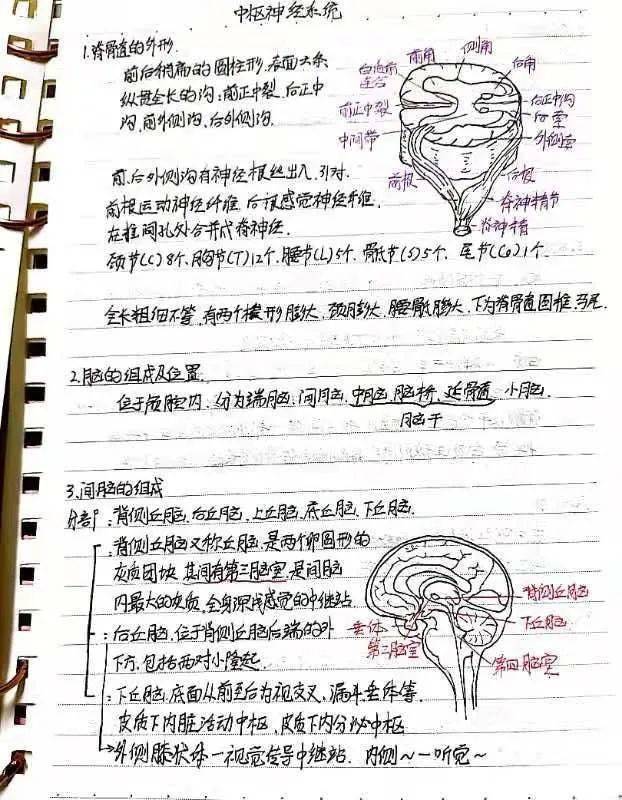 中枢神经系统
1.脊骨道的外形.
前后稍扁的圆柱形.表面六条
纵贯全长的沟:前正中裂.后正中
沟.前外侧沟.后外侧沟.
前.后外侧沟有神经根丝出入.31对.
前根运动神经纤维 后根感觉神经纤维.
在椎间孔处合并成脊神经.
颈节(C)8个.胸节(T)12个.腰节(L)5个.骨低节(S)5个. 尾节(Co)1个.
全长粗细不等.有两个梭形膨大.颈膨大.腰骶膨大.下为脊骨道圆椎.马尾.
白池前
连合
前角
侧角
后角
前正中裂
中间带
后正中沟
后索
外侧索
前根
后根
脊神精节
脊神精
2.脑的组成及位置.
位于颅腔内.分为端脑.间脑.中脑.脑桥.延骨道 小脑.
脑干
3.间脑的组成
分部:背侧丘脑.后丘脑.上丘脑.底丘脑.下丘脑.
:背侧丘脑又称丘脑.是两个卵圆形的
灰质团块 其间有第三脑室.是间脑
内最大的灰质.全身深浅感觉的中继站
:后丘脑.位于背侧丘脑后端的外
下方.包括两对小隆起.
:下丘脑.底面从前至后为视交叉.漏斗.垂体等.
皮质下内脏活动中枢.皮质下内分泌中枢
→外侧膝状体一视觉传导中继站. 内侧~一听觉~
背侧丘脑
下丘脑
垂体
第三脑室
第四脑室